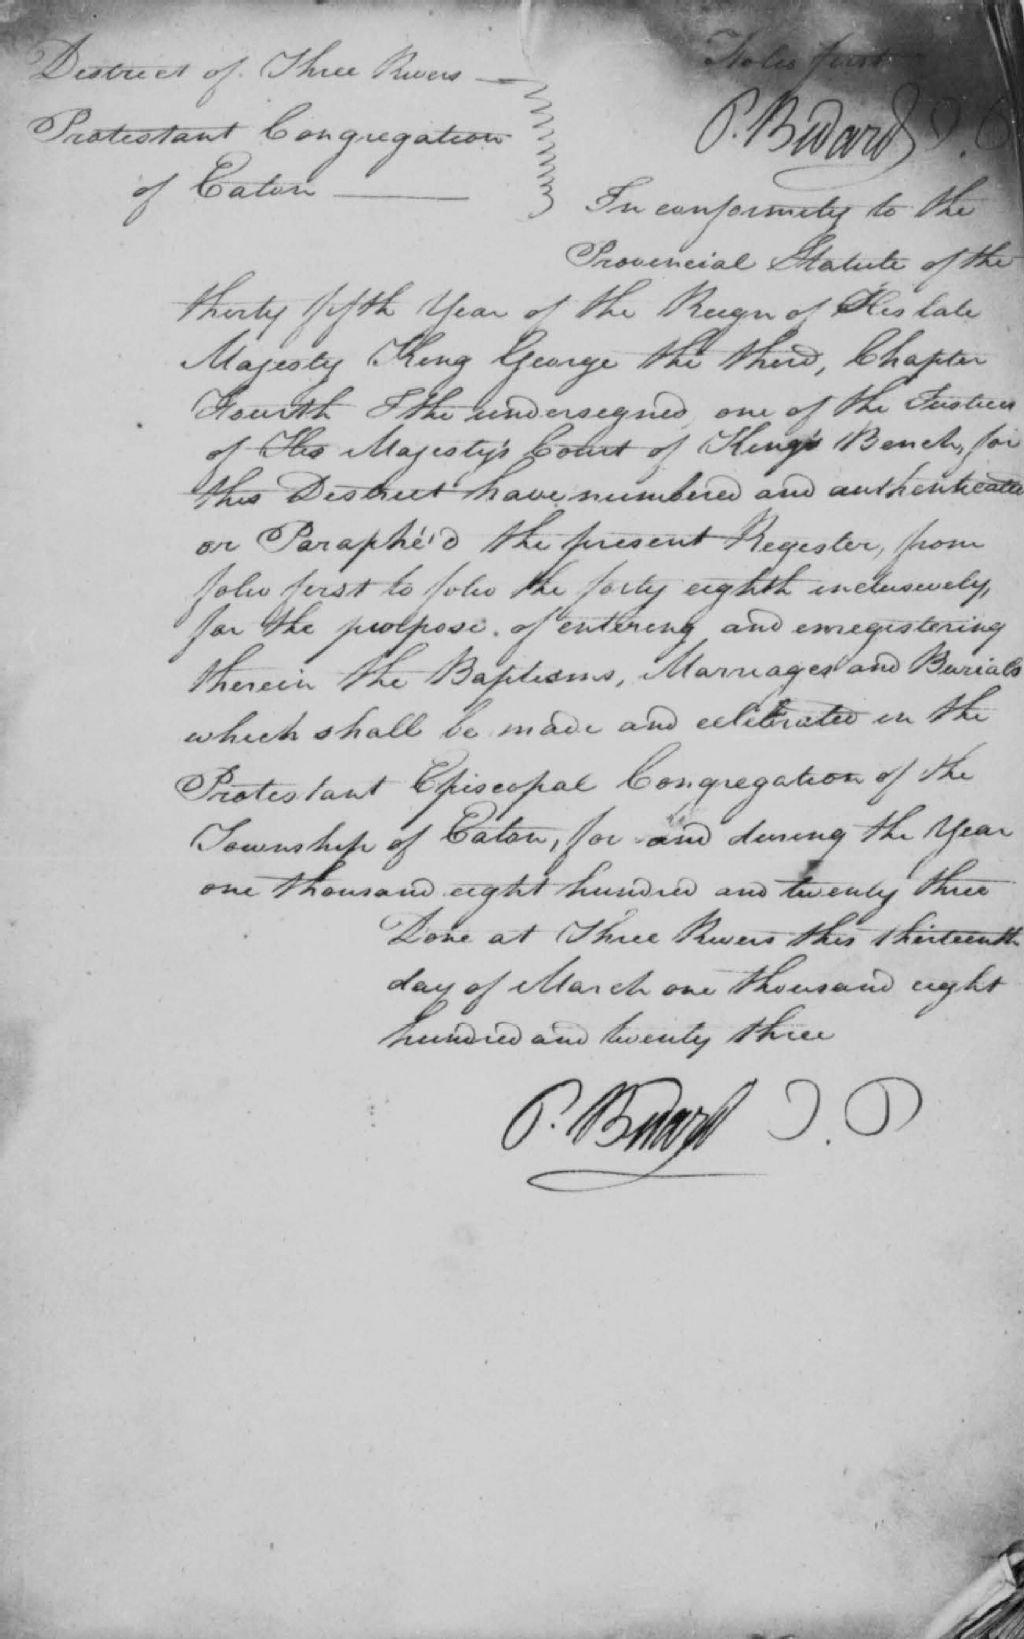 District of Three Rivers
Protestant Congregation
of Eaton
Folio first
P. Bedard J. P
In conformity to the
Provincial Statute of the
thirty fifth Year of the Reign of His late
Majesty King George the third, Chapter
Fourth I the undersigned, one of the Justices
of His Majesty's Court of King's Bench, for
this District have numbered and authenticated
or Paraphé'd the present Register, from
folio first to folio the forty eighth inclusively,
for the purpose of entering and enregistering
therein the Baptisms, Marriages and Burials
which shall be made and celibrated in the
Protestant Episcopal Congregation of the
Township of Eaton, for and during the Year
one thousand eight hundred and twenty three
Done at Three Rivers this thirteenth
day of March one thousand eight
hundred and twenty three
P. Bedard J. P